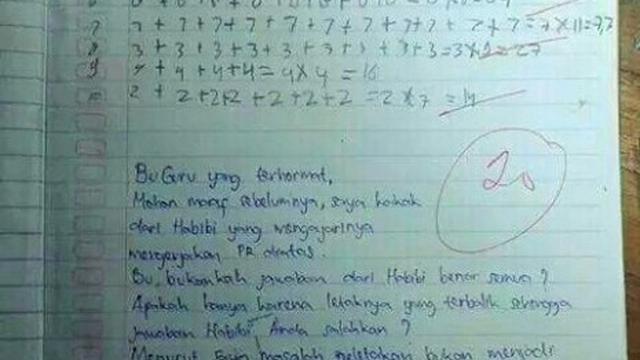 7 7 + 7 + 7 + 7 + 7 + 7 + 7 + 7 + 7 + 7 + 7 = 7 x 11 = 77
8 3 + 3 + 3 + 3 + 3 + 3 + 3 + 3 + 3 = 3 x 9 = 27
9 4 + 4 + 4 + 4 = 4 x 4 = 16
10 2 + 2 + 2 + 2 + 2 + 2 + 2 = 2 x 7 = 14
20
Bu Guru yang terhormat,
Mohon maaf sebelumnya, saya kakak
dari Habibi yang mengajarinya
mengerjakan PR diatas.
Bu, bukankah jawaban dari Habibi benar semua ?
Apakah hanya karena letaknya yang terbalik sehingga
jawaban Habibi Anda salahkan ?
Menurut saya masalah peletakan bukan menjadi